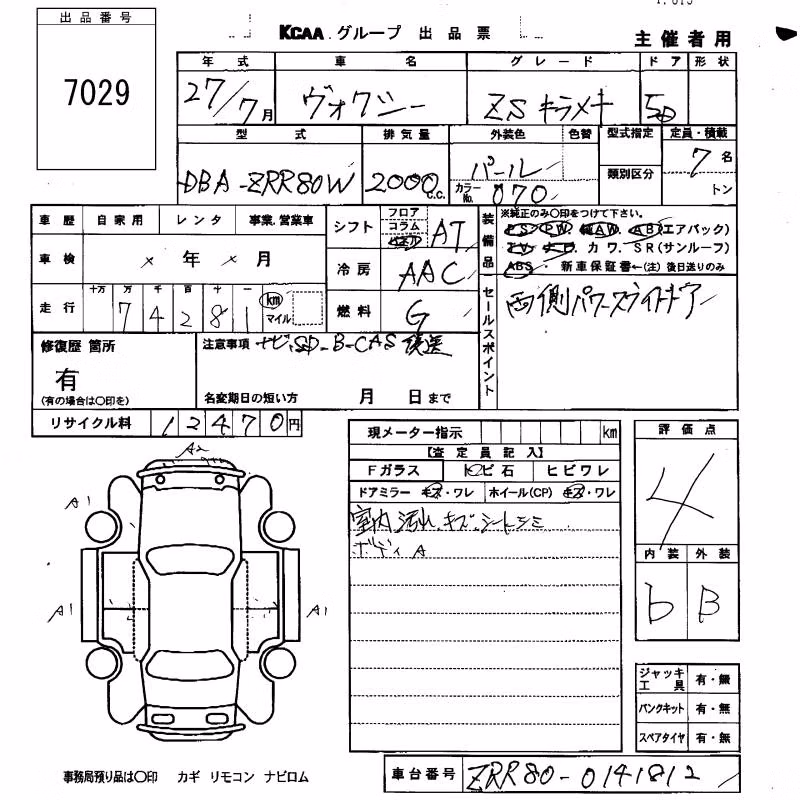 出品番号
7029
KCAA グループ 出品票
主催者用
年式 車名 グレード ドア 形状
27/7月 ヴォクシー ZS キラメキ 5D
型式 排気量 外装色 色替 型式指定 定員・積載
DBA-ZRR80W 2000c.c. パール 7名
カラーNo. 070 類別区分 トン
車歴 自家用 レンタ 事業.営業車
車検 × 年 × 月
走行 十万 万 千 百 十 一 km
7 4 2 8 1 マイル
シフト フロア コラム AT
冷房 AAC
燃料 G
装備品
※純正のみ〇印をつけて下さい。
PS PW AW AB(エアバック)
TV ナビ カワ SR(サンルーフ)
ABS 新車保証書←(注)後日送りのみ
セールスポイント
両側パワースライドドアー
修復歴 箇所
有
(有の場合は〇印を)
注意事項 ナビ,SD-B-CAS 後送
名変期日の短い方 月 日まで
リサイクル料 12470円
現メーター指示 km
【査定員記入】
Fガラス トビ石 ヒビワレ
ドアミラー キズ・ワレ ホイール(CP) キズ・ワレ
室内 汚れ.キズ.シートシミ
ボディ A
評価点
4
内装 外装
b B
A2
A1
A1
A1
ジャッキ工具 有・無
パンクキット 有・無
スペアタイヤ 有・無
事務局預り品は〇印 カギ リモコン ナビロム
車台番号 ZRR80-0141812